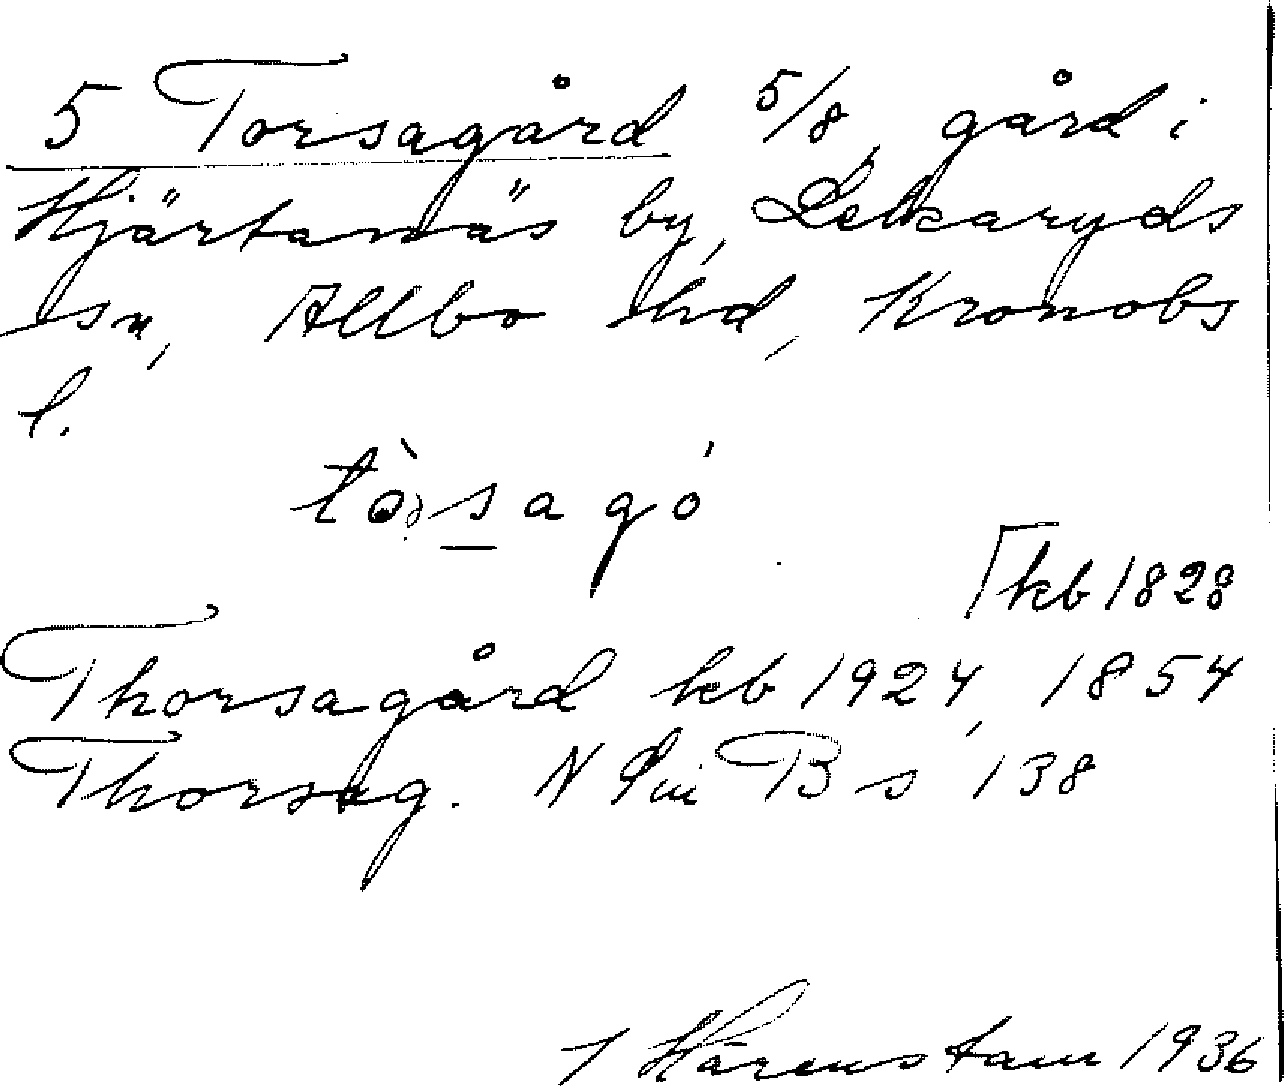 5 Torsagård 5/8, gård i
Hjärtanäs by, Lekaryds
sn, Allbo hd, Kronobs
l.
tòrsagó
[kb 1828
Thorsagård kb 1924, 1854
Thorsag. N Lin B s 138
Härenstam 1936